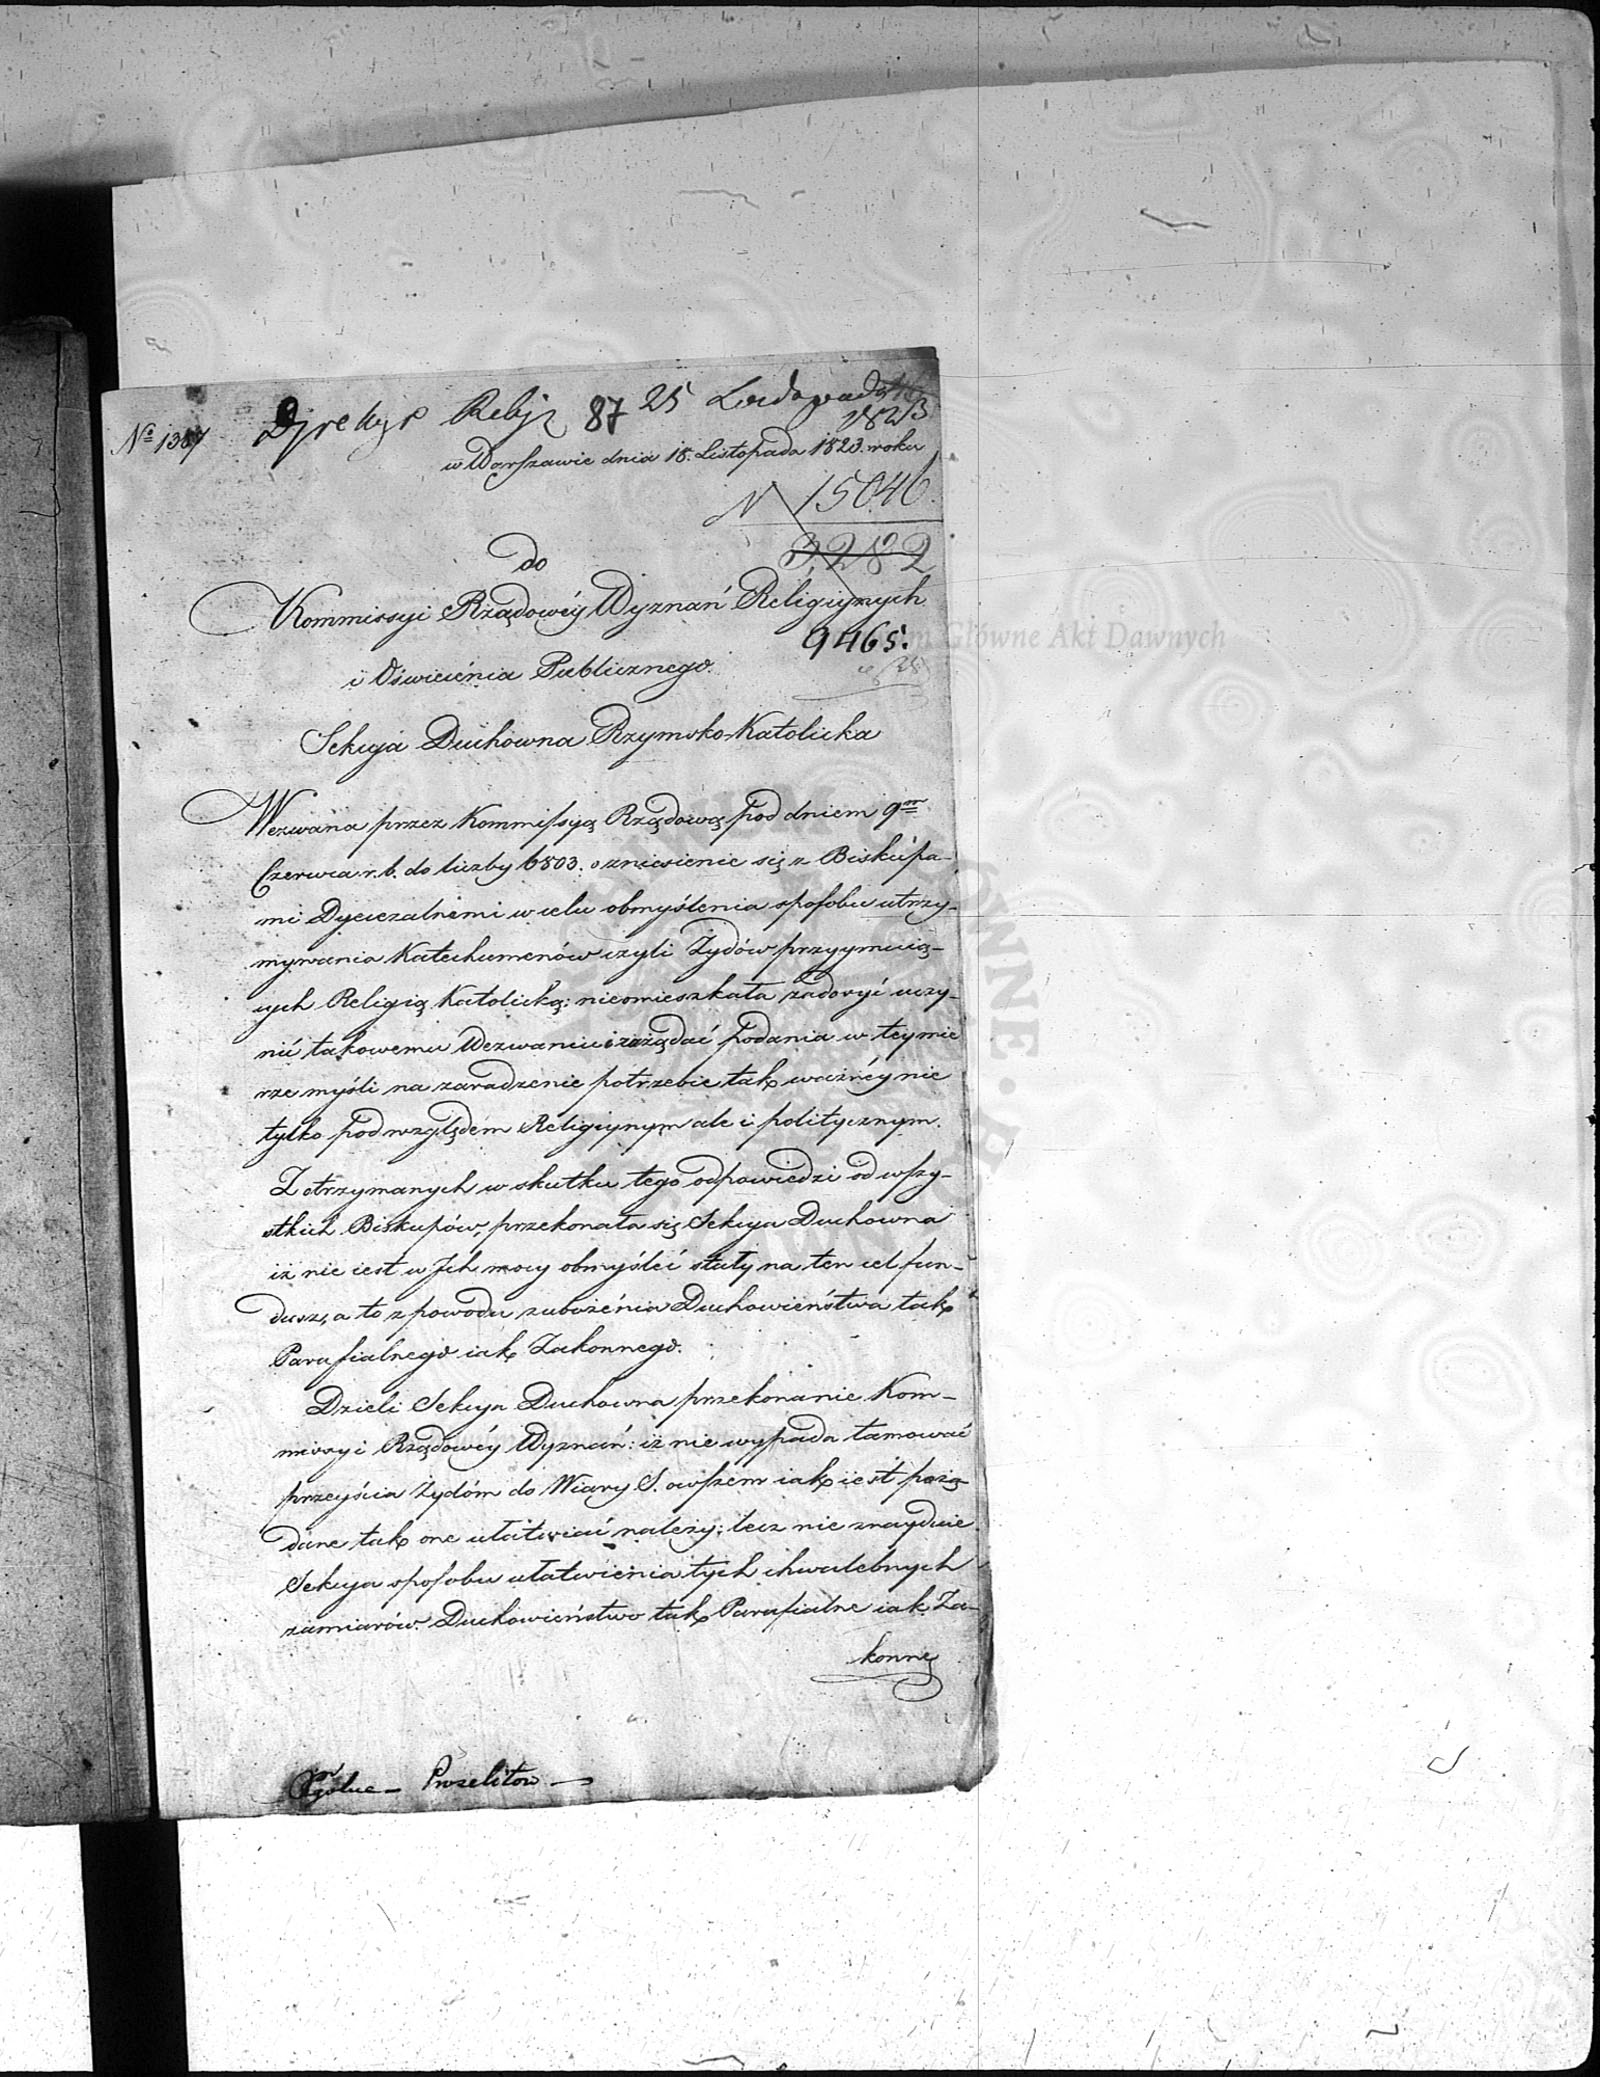 Nº 1387 Dyrekcya Religi 87 25 Listopada
1823
w Warszawie dnia 18. Listopada 1823. roku
N 15046.
3,282
do
Kommissyi Rządowéy Wyznań Religiynych
9465.
i Oświecenia Publicznego.
Sekcya Duchowna Rzymsko-Katolicka
Wezwana przez Kommissyą Rządową pod dniem 9m
Czerwca r. b. do liczby 6803. o zniesienie się z Biskupa-
mi Dyecezalnemi w celu obmyślenia sposobu utrzy-
mywania Katechumenów czyli Żydów przyymuią-
cych Religią Katolicką; nieomieszkała zadosyć uczy-
nić takowemu Wezwaniu i zażądać podania w tey mie
rze myśli na zaradzenie potrzebie tak ważnéy nie
tylko pod względem Religiynym ale i politycznym.
Z otrzymanych w skutku tego odpowiedzi od wszy-
stkich Biskupów, przekonała się Sekcya Duchowna
iż nie iest w Ich mocy obmyśleć stały na ten cel fun-
dusz, a to z powodu zubożenia Duchowieństwa tak
Parafialnego iak Zakonnego.
Dzieli Sekcya Duchowna przekonanie Kom-
missyi Rządowéy Wyznań: iż nie wypada tamować
przeyścia Żydóm do Wiary S. owszem iak iest pożą-
dane tak one ułatwiać należy; lecz nie znayduie
Sekcya sposobu ułatwienia tych chwalebnych
zamiarów. Duchowieństwo tak Parafialne iak Za-
konne
Prozelitow
Główne Akt Dawnych